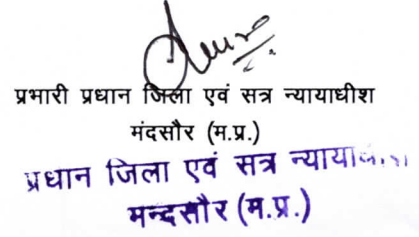 प्रभारी प्रधान जिला एवं सत्र न्यायाधीश
मंदसौर (म.प्र.)
प्रधान जिला एवं सत्र
मन्दसौर (म.प्र.)